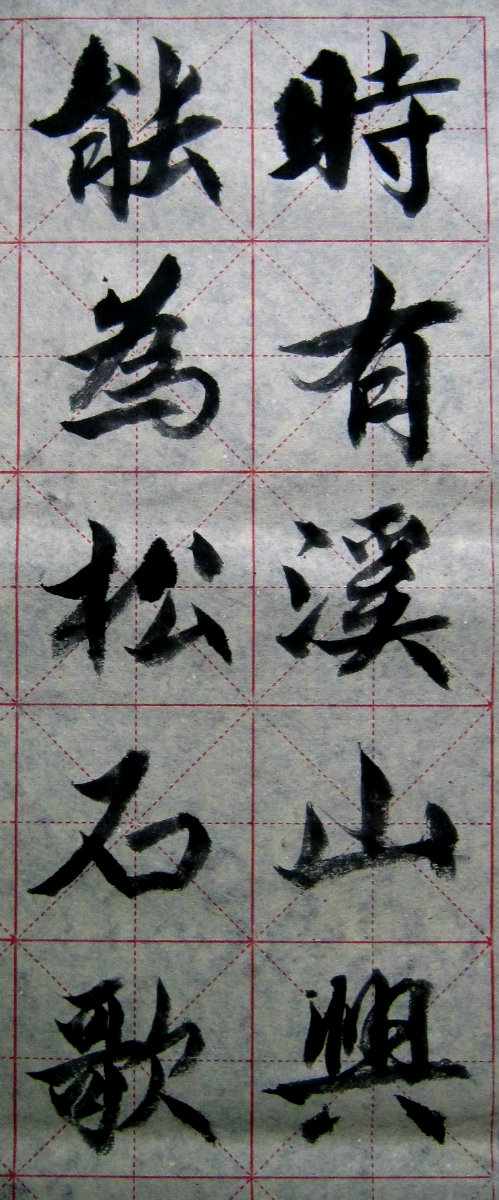 時有溪山興
能為松石歌